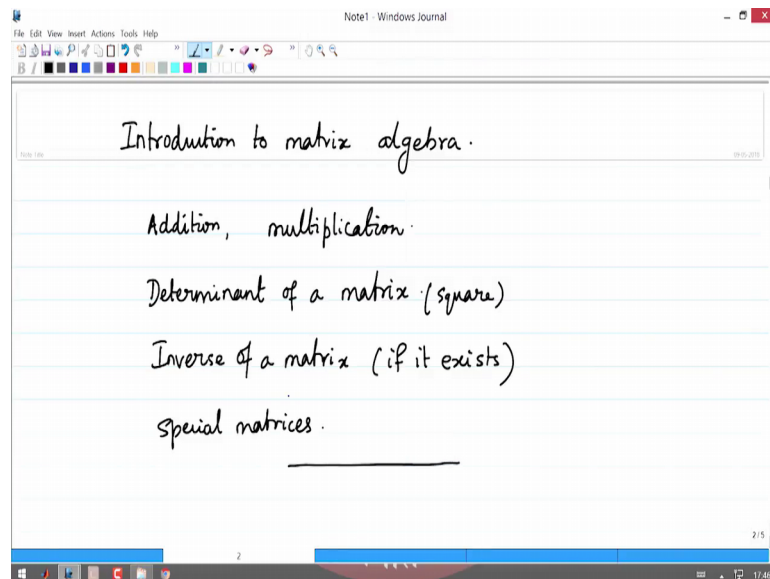 Note1 - Windows Journal
File Edit View Insert Actions Tools Help
B I
Introduction to matrix algebra.
Note Title
09-05-2018
Addition, multiplication.
Determinant of a matrix (square)
Inverse of a matrix (if it exists)
special matrices.
2/5
2
17:46